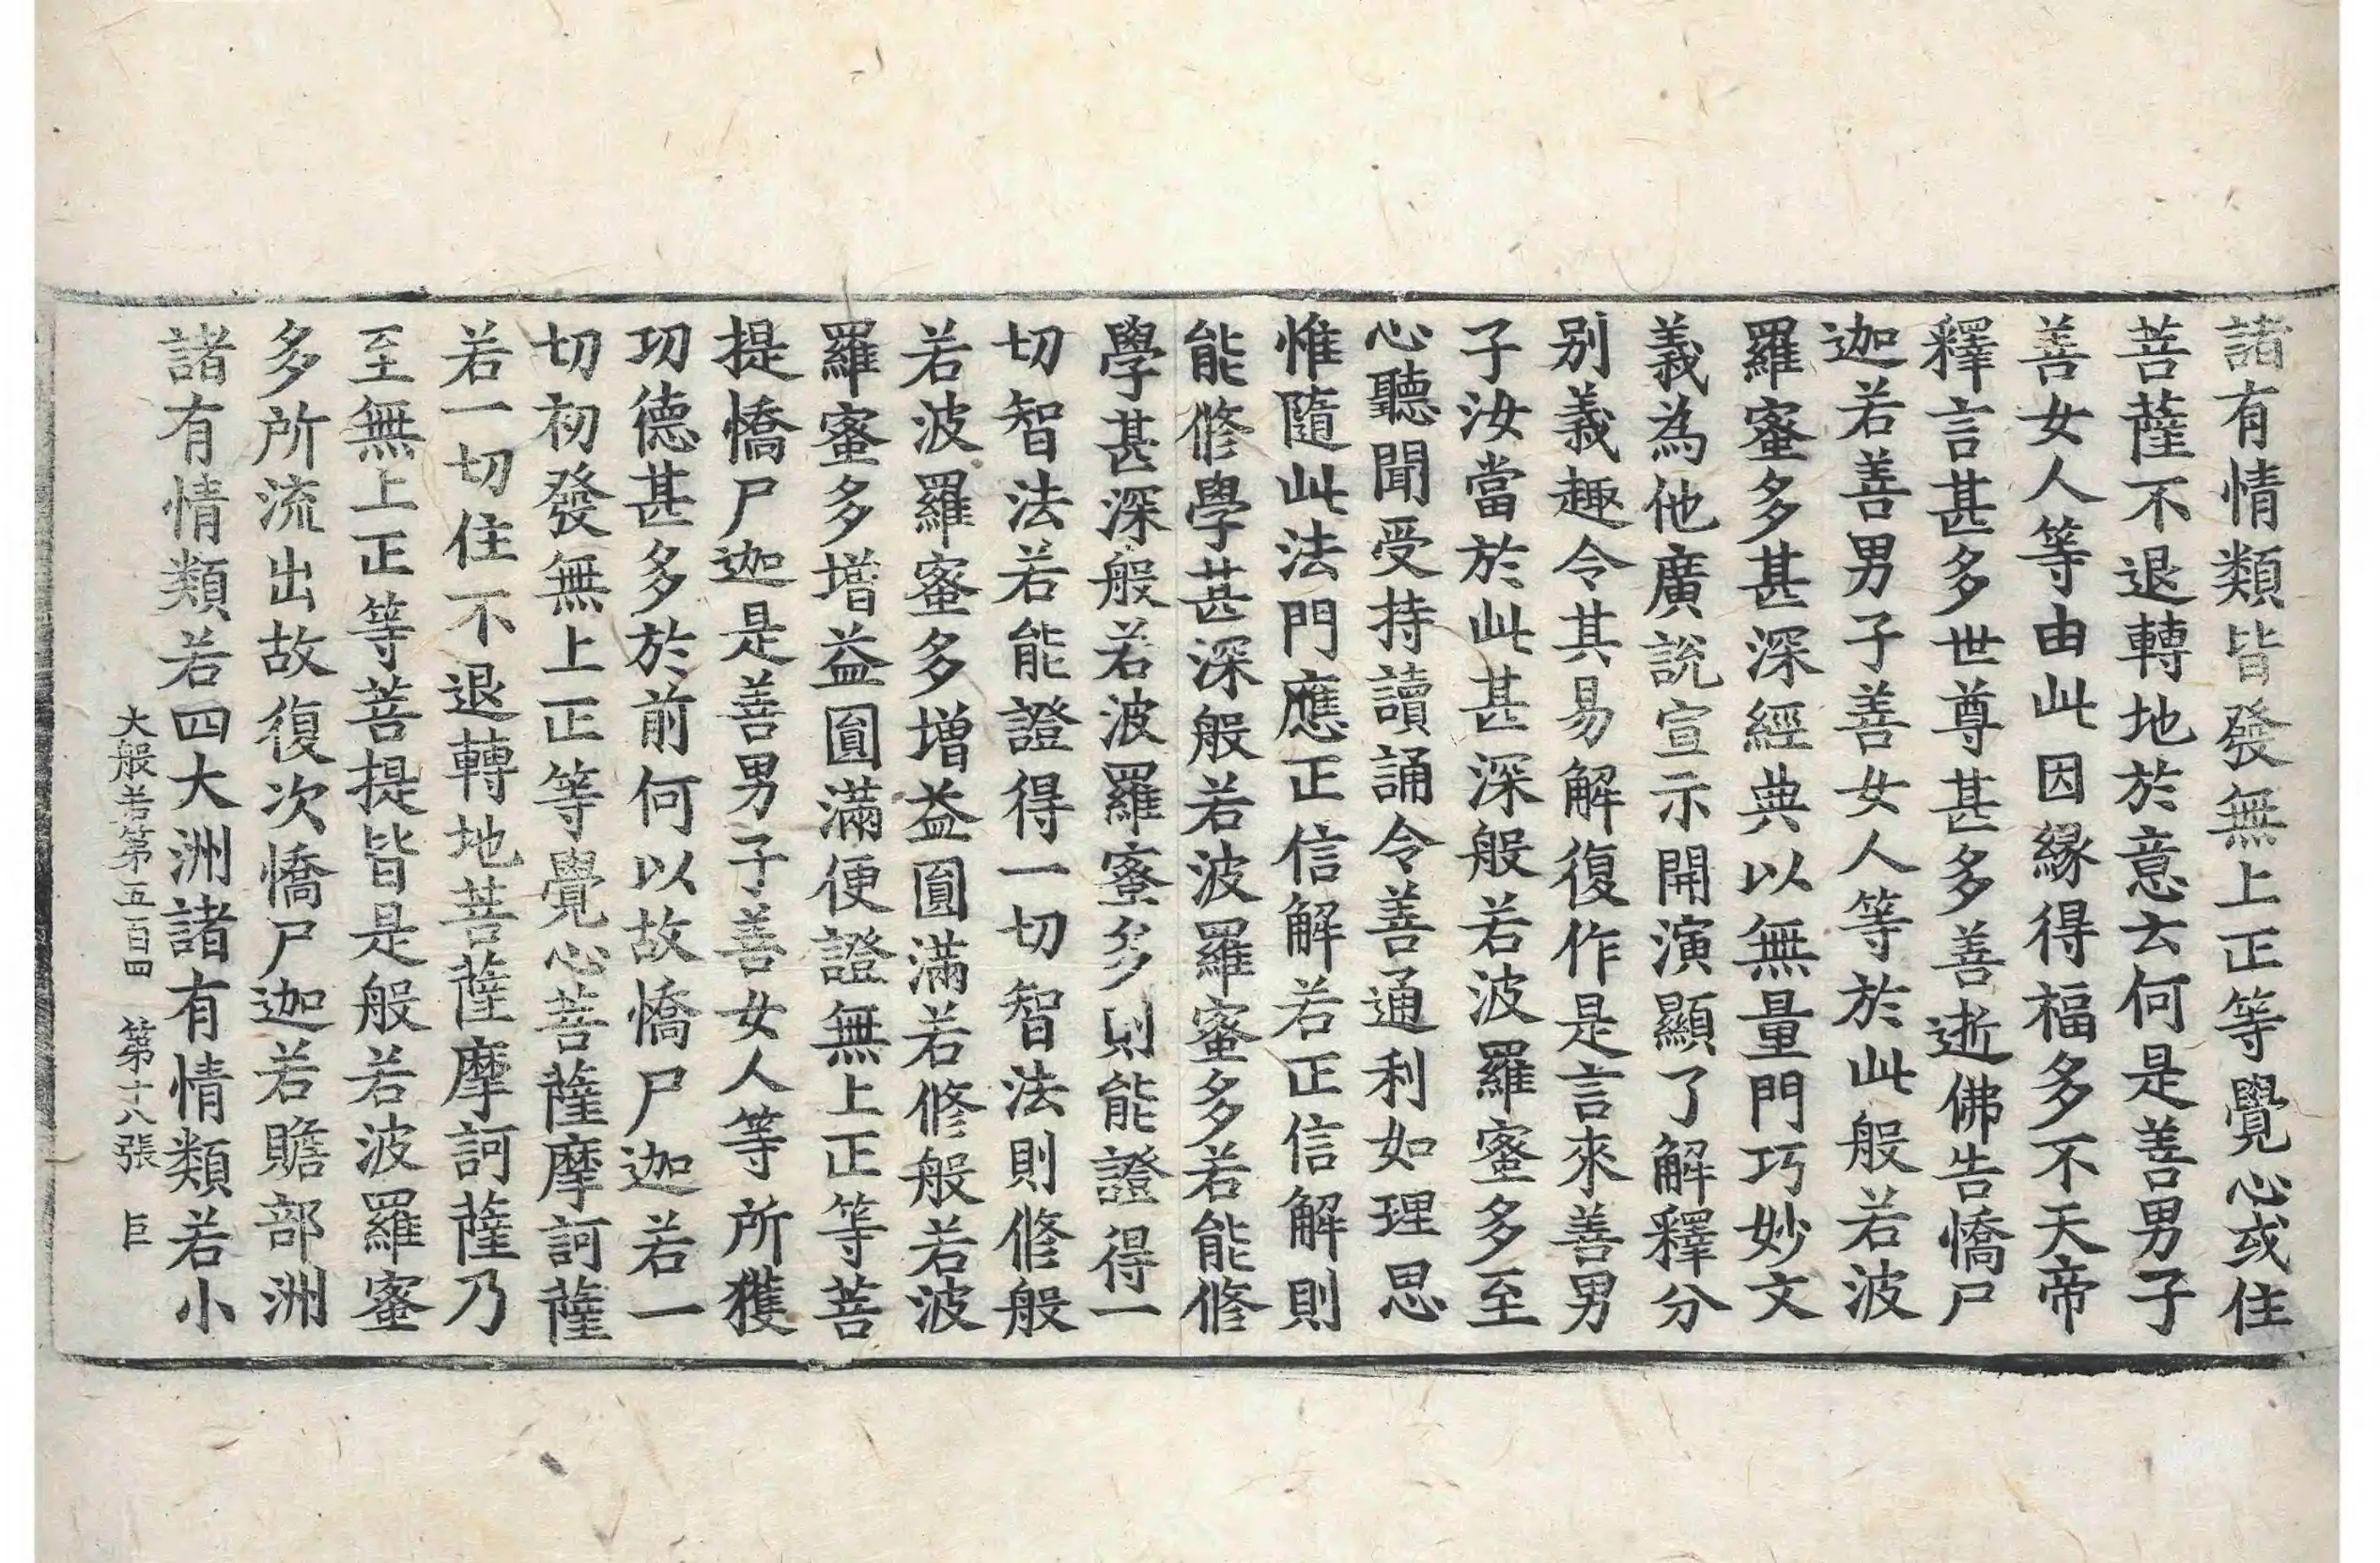 諸有情類皆發無上正等覺心或住
菩薩不退轉地於意云何是善男子
善女人等由此因緣得福多不天帝
釋言甚多世尊甚多善逝佛告憍尸
迦若善男子善女人等於此般若波
羅蜜多甚深經典以無量門巧妙文
義為他廣說宣示開演顯了解釋分
別義趣令其易解復作是言來善男
子汝當於此甚深般若波羅蜜多至
心聽聞受持讀誦令善通利如理思
惟隨此法門應正信解若正信解則
能修學甚深般若波羅蜜多若能修
學甚深般若波羅蜜多則能證得一
切智法若能證得一切智法則修般
若波羅蜜多增益圓滿若修般若波
羅蜜多增益圓滿便證無上正等菩
提憍尸迦是善男子善女人等所獲
功德甚多於前何以故憍尸迦若一
切初發無上正等覺心菩薩摩訶薩
若一切住不退轉地菩薩摩訶薩乃
至無上正等菩提皆是般若波羅蜜
多所流出故復次憍尸迦若贍部洲
諸有情類若四大洲諸有情類若小
大般若第五百四 第十八張 巨